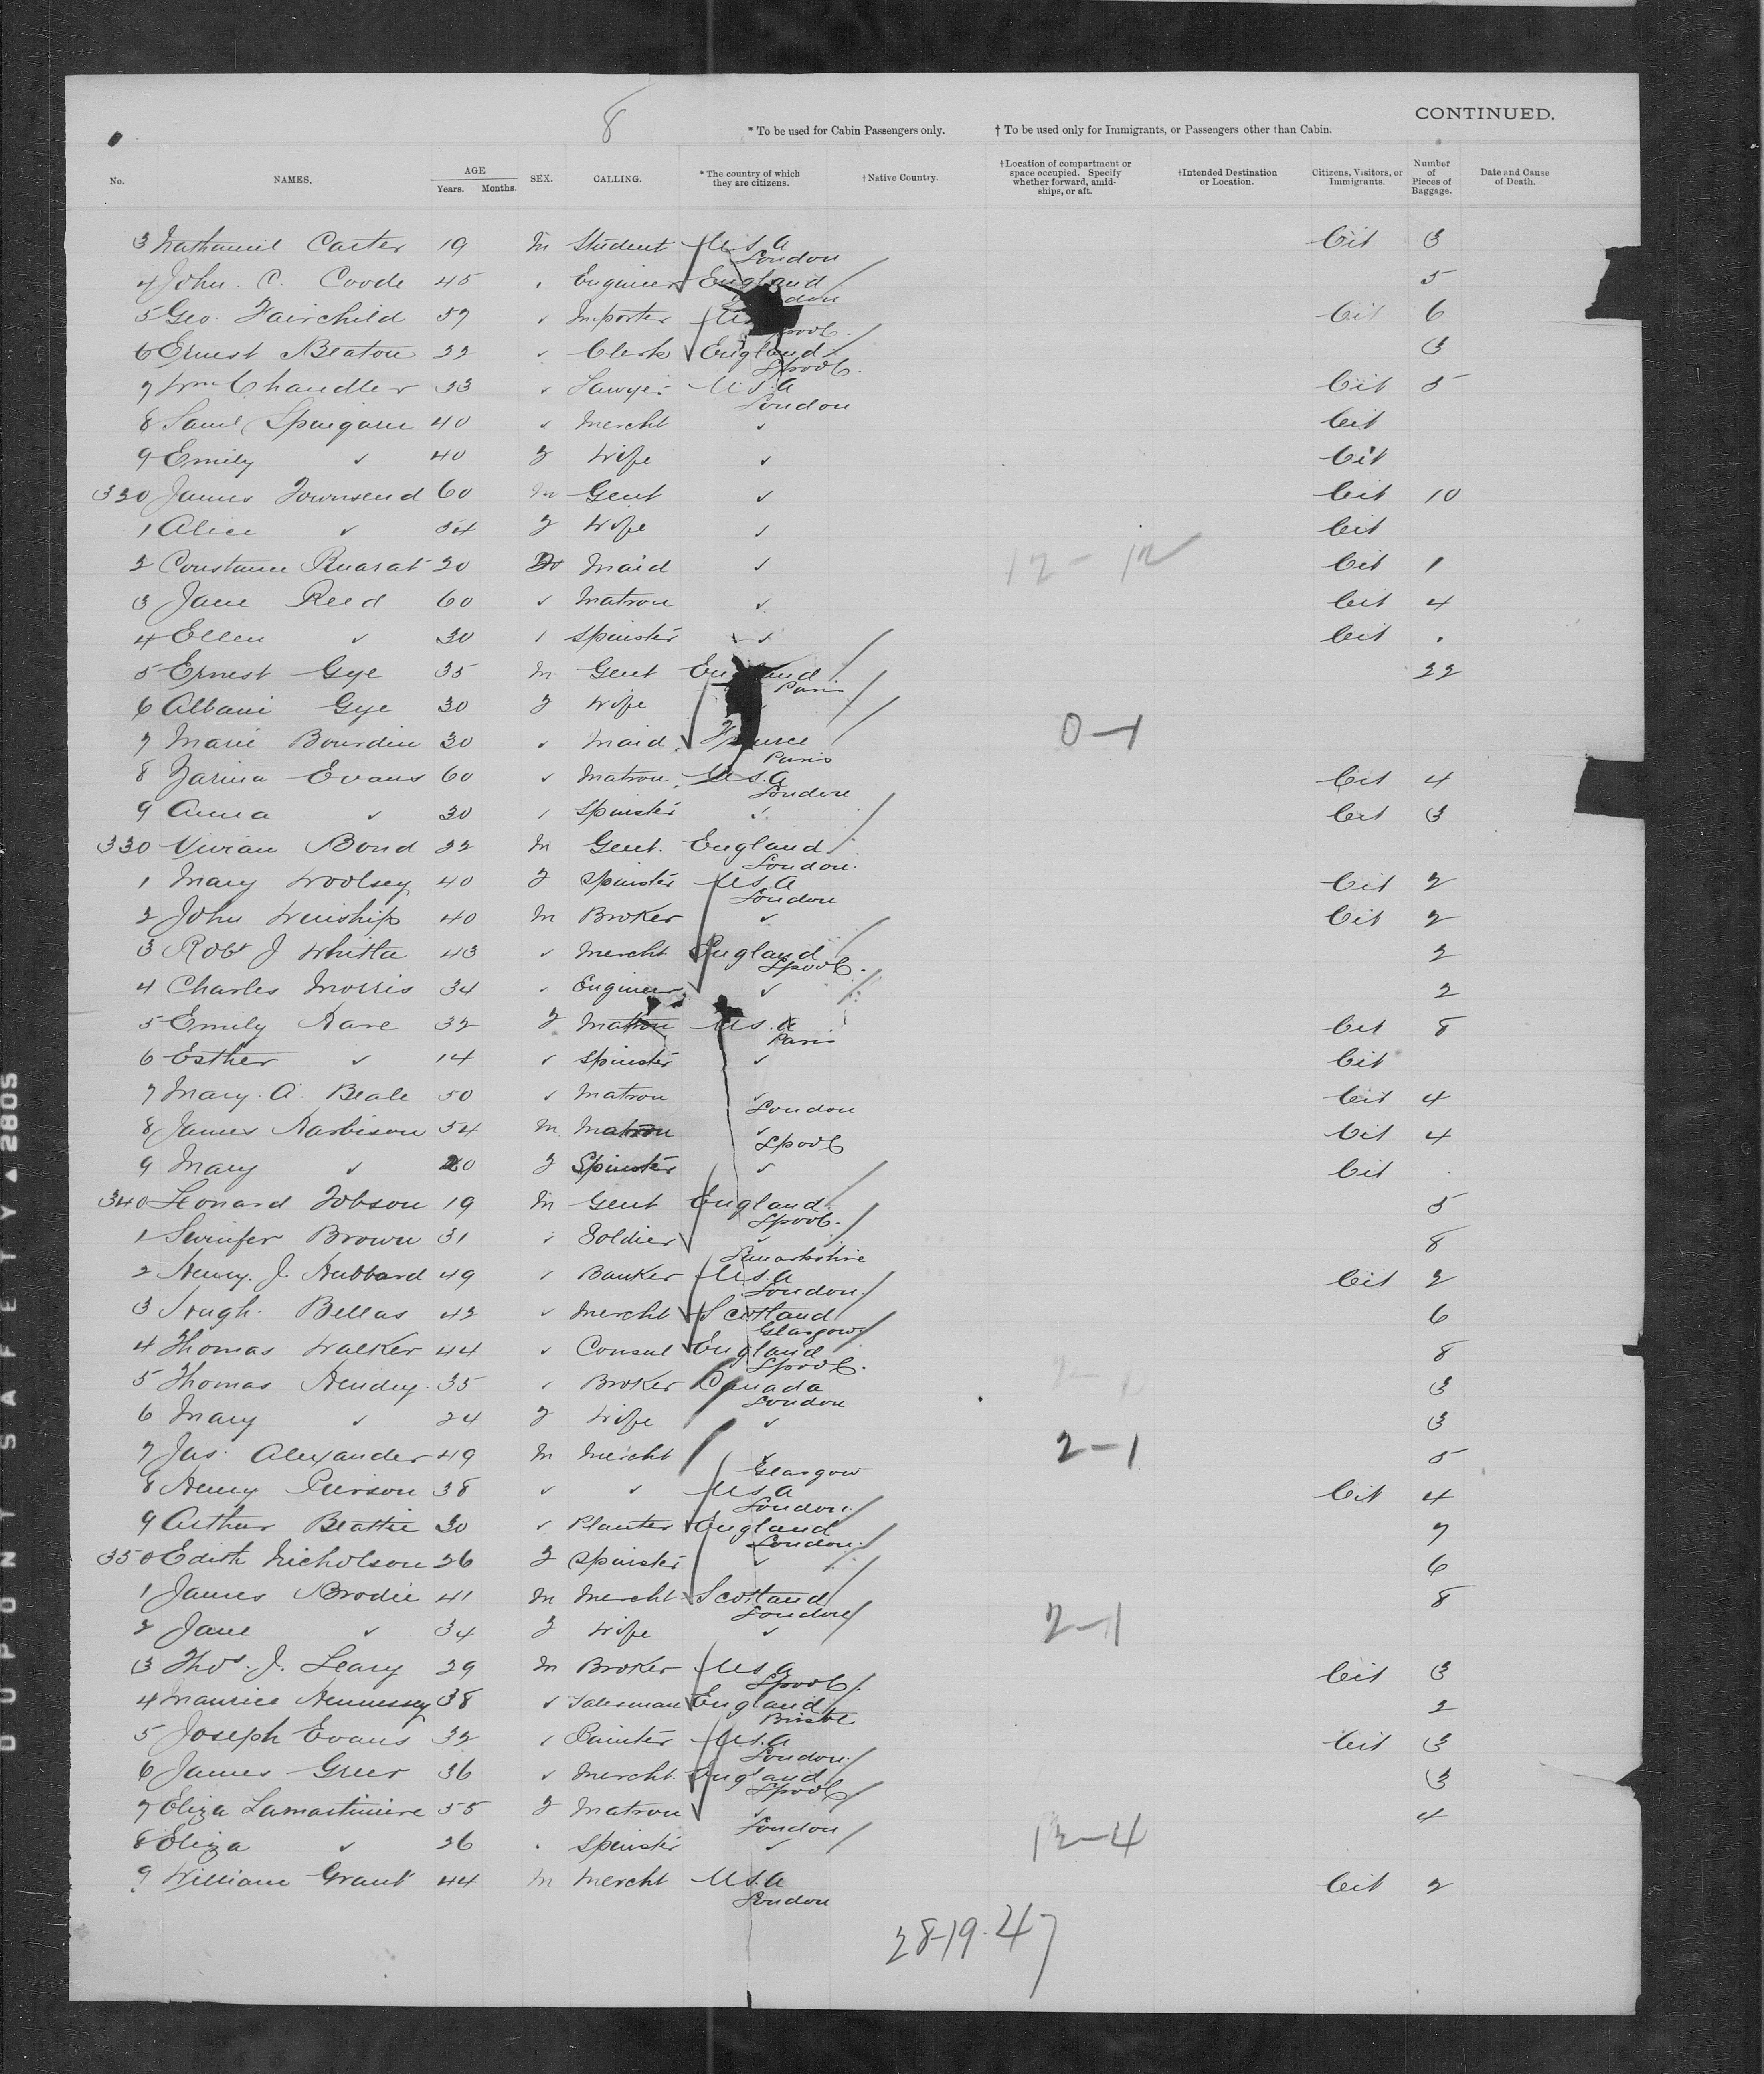 8
* To be used for Cabin Passengers only. † To be used only for Immigrants, or Passengers other than Cabin. CONTINUED.
No. NAMES. AGE Years. Months. SEX. CALLING. * The country of which they are citizens. †Native Country. †Location of compartment or space occupied. Specify whether forward, amidships, or aft. †Intended Destination or Location. Citizens, Visitors, or Immigrants. Number of Pieces of Baggage. Date and Cause of Death.
3 Nathaniel Carter 19 M Student U.S.A London Cit 3
4 John. C. Coode 45 Engineer England 5
5 Geo. Fairchild 57 ✓ Importer Cit 6
6 Ernest Beaton 22 ✓ Clerk England Lpool. 3
7 Wm Chandler 33 ✓ Lawyer U.S.A London Cit 5
8 Saml Spaigarn 40 ✓ Mercht ✓ Cit
9 Emily ✓ 40 F Wife ✓ Cit
320 James Townsend 60 M Gent ✓ Cit 10
1 Alice ✓ 54 F Wife ✓ Cit
2 Constance 20 Maid ✓ 12 - 12 Cit 1
3 Jane Reed 60 ✓ Matron ✓ Cit 4
4 Ellen ✓ 30 Spinster ✓ Cit
5 Ernest Gye 35 M Gent England Paris 22
6 Albani Gye 30 F Wife
7 Marie Bourdin 30 ✓ Maid France Paris 0-1
8 Evans 60 ✓ Matron U.S.A London Cit 4
9 Anna ✓ 30 Spinster ✓ Cit 3
330 Vivian Bond 32 M Gent. England London.
1 Mary Woolsey 40 F Spinster U.S.A London Cit 2
2 John Winship 40 M Broker ✓ Cit 2
3 Robt J Whitla 43 ✓ Mercht England Lpool. 2
4 Charles Morris 34 ✓ Engineer ✓ 2
5 Emily Hare 32 F Matron U.S.A Paris Cit 8
6 Esther ✓ 14 ✓ Spinster ✓ Cit
7 Mary. A. Beale 50 ✓ Matron ✓ London Cit 4
8 James Harbison 54 M Matron ✓ Lpool Cit 4
9 Mary ✓ 20 F Spinster ✓ Cit
340 Leonard Jobson 19 M Gent England Lpool. 5
1 Swinfer Brown 31 Soldier ✓ Lanarkshire 8
2 Henry. J. Hubbard 49 ✓ Banker U.S.A London. Cit 2
3 Hugh. Bellas 42 ✓ Mercht Scotland Glasgow 6
4 Thomas Walker 44 ✓ Consul England Lpool. 8
5 Thomas Hendry. 35 ✓ Broker Canada London 3
6 Mary ✓ 24 F Wife ✓ 3
7 Jas. Alexander 49 M Mercht ✓ Glasgow 2-1 5
8 Henry Pierson 38 ✓ ✓ U.S.A London. Cit 4
9 Arthur Beattie 30 ✓ Planter England London. 7
350 Edith Nicholson 26 F Spinster ✓ 6
1 James Brodie 41 M Mercht Scotland London 8
2 Jane ✓ 34 F Wife ✓ 2-1
3 Thos. J. Leary 29 M Broker U.S.A Lpool. Cit 3
4 Maurice Hennessey 38 ✓ Salesman England Bristol 2
5 Joseph Evans 32 ✓ Painter U.S.A London. Cit 3
6 James Greer 36 ✓ Mercht. England Lpool 3
7 Eliza Lamartiniere 55 F Matron ✓ London 4
8 Eliza ✓ 26 Spinster ✓ 12-4
9 William Grant 44 M Mercht U.S.A London Cit 2
28-19.47
DUPONT SAFETY ▲ 2805